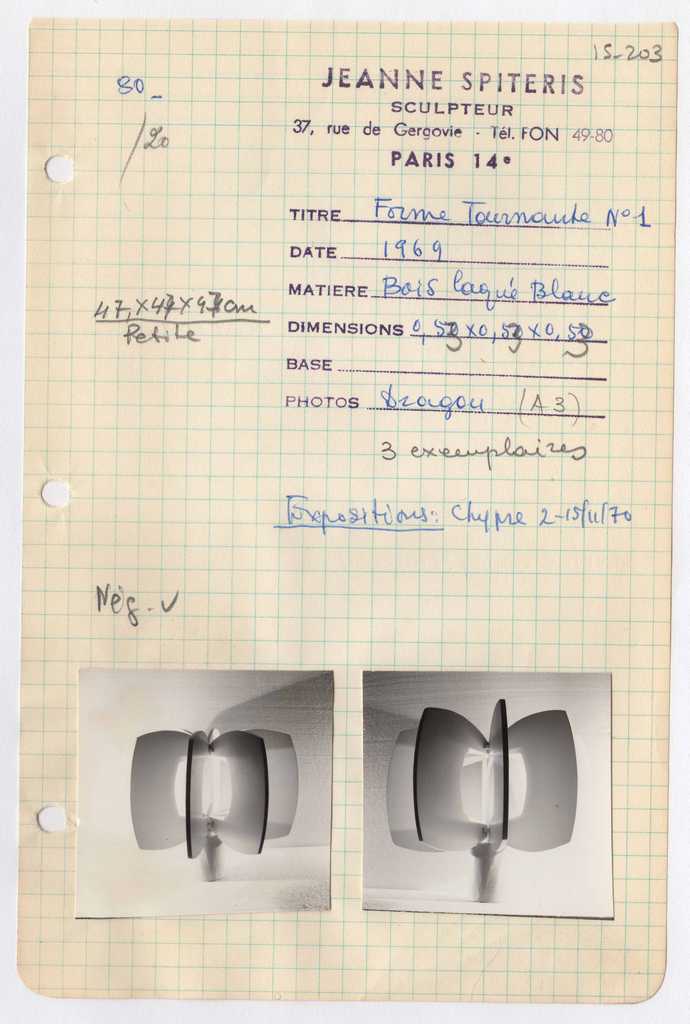 15-203
80_
/20
JEANNE SPITERIS
SCULPTEUR
37, rue de Gergovie - Tél. FON 49-80
PARIS 14e
TITRE Forme Tournante N° 1
DATE 1969
MATIERE Bois laqué Blanc
47 x 47 x 47 cm
Petite
DIMENSIONS 0,53 x 0,53 x 0,53
BASE
PHOTOS Dragou (A3)
3 exemplaires
Expositions: Chypre 2-15/11/70
Nég. v